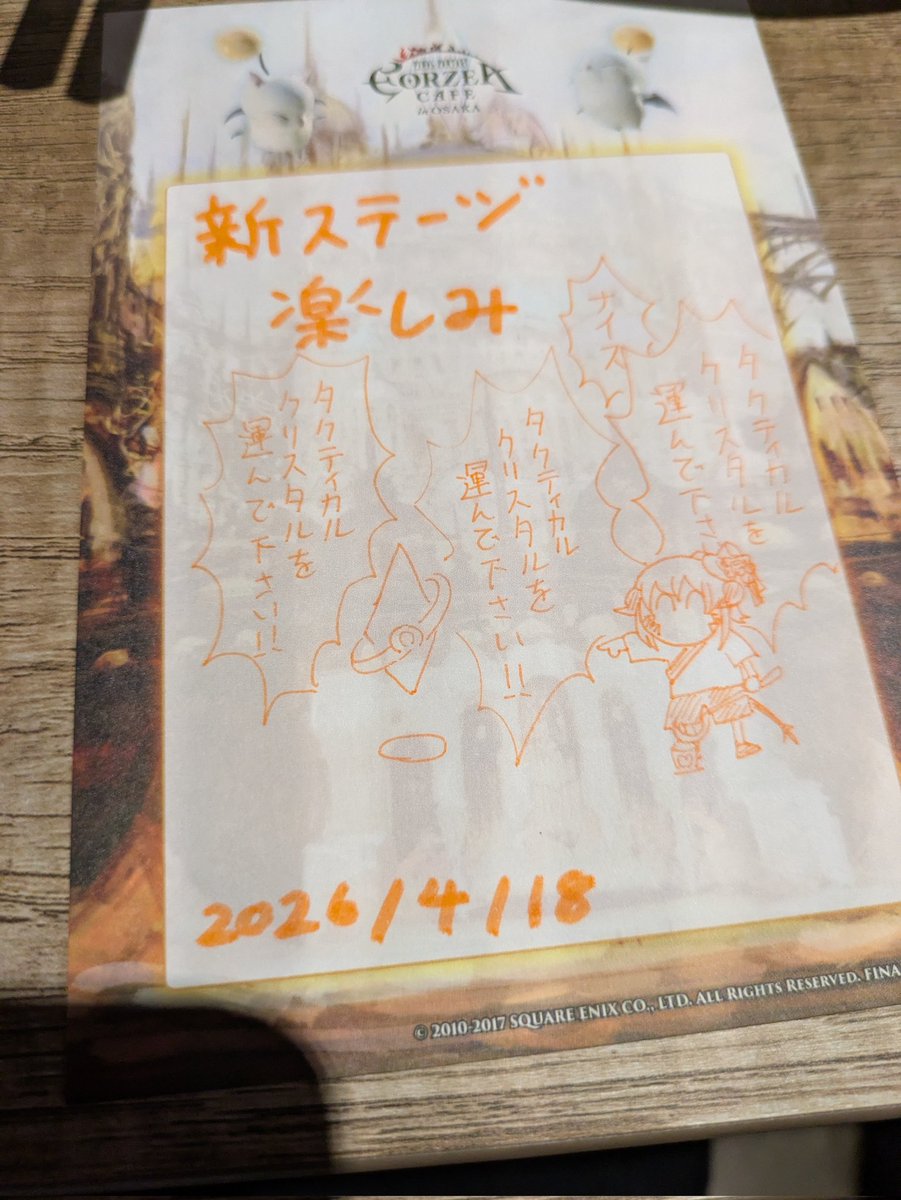 EORZEA
CAFE
in OSAKA
新ステージ
楽しみ
ナイス
タクティカル
クリスタルを
運んで下さ
タクティカル
クリスタルを
運んで下さい!!
タクティカル
クリスタルを
運んで下さい!!
2026/4/18
© 2010-2017 SQUARE ENIX CO., LTD. ALL RIGHTS RESERVED. FINA